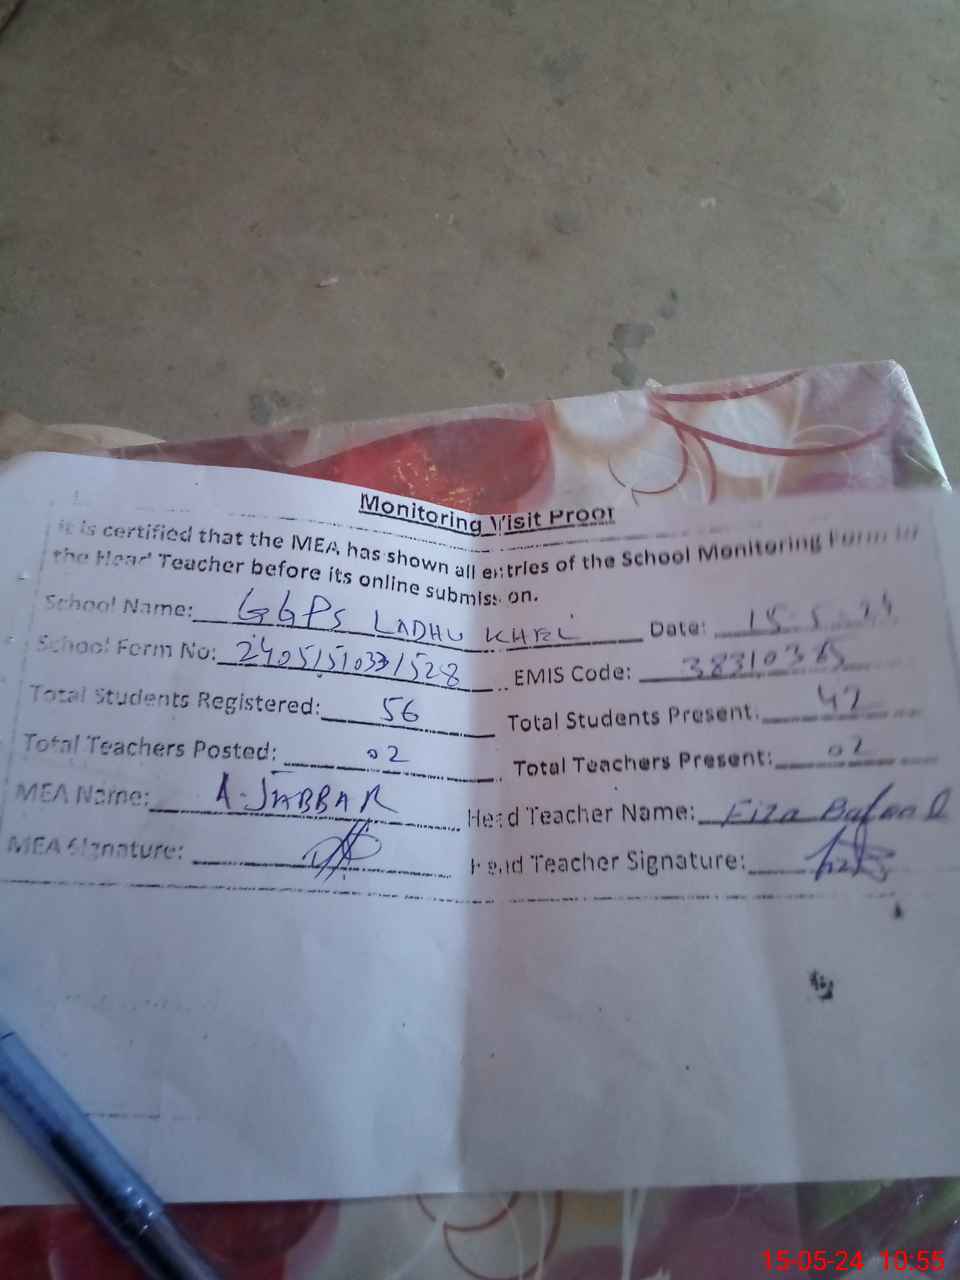 Monitoring Visit Proof
It is certified that the MEA has shown all entries of the School Monitoring Form to
the Head Teacher before its online submission.
School Name: GGPS LADHU KHEL Date: 15-5-24
School Form No: EMIS Code: 38310365
Total Students Registered: 56 Total Students Present: 42
Total Teachers Posted: 02 Total Teachers Present: 02
MEA Name: A-JABBAR Head Teacher Name: Fiza
MEA Signature: Head Teacher Signature:
15-05-24 10:55